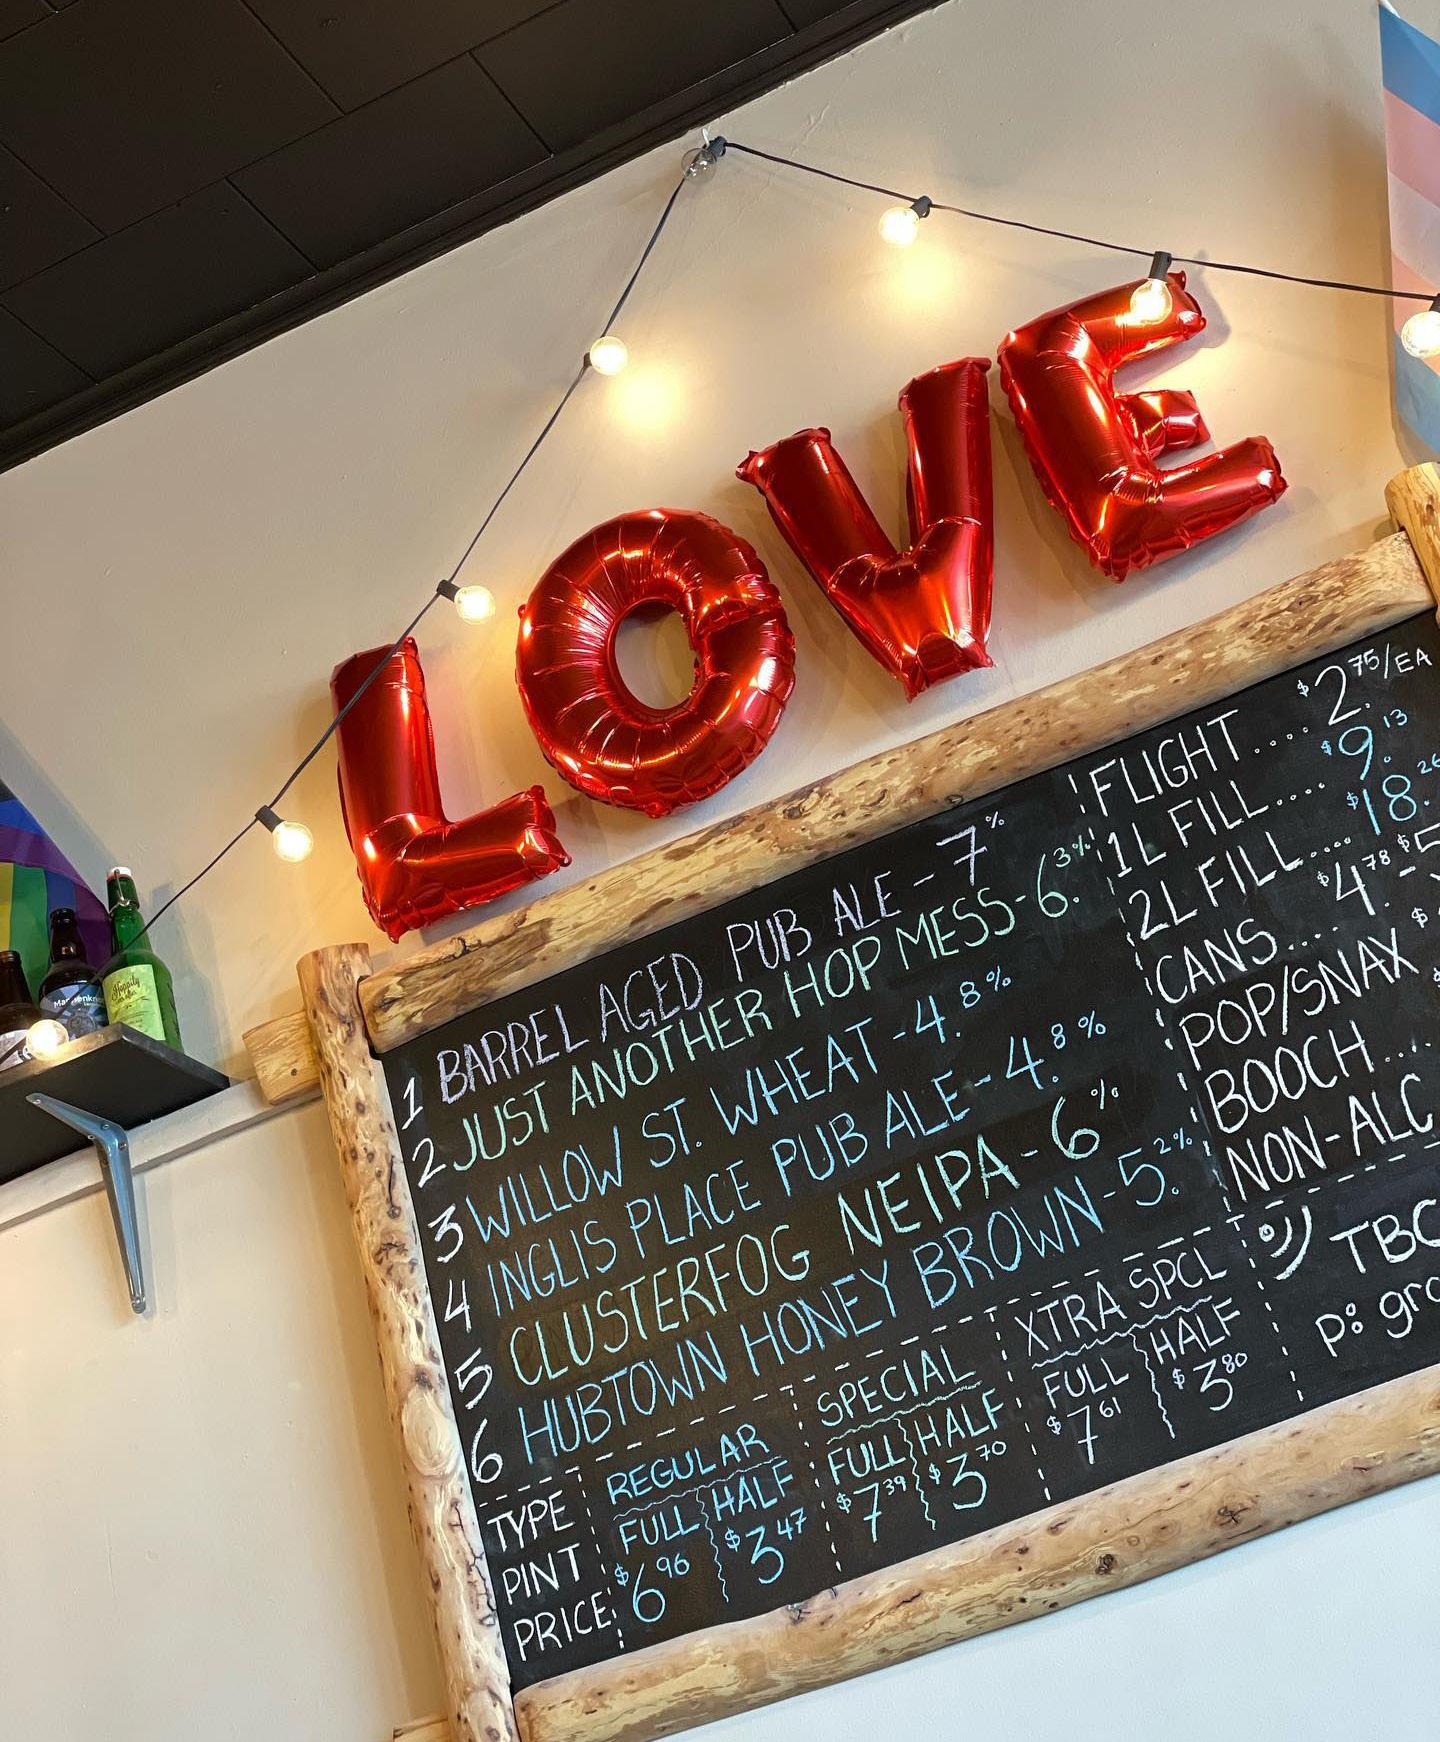 LOVE
1 BARREL AGED PUB ALE - 7%
2 JUST ANOTHER HOP MESS - 6.3%
3 WILLOW ST. WHEAT - 4.8%
4 INGLIS PLACE PUB ALE - 4.8%
5 CLUSTERFOG NEIPA - 6%
6 HUBTOWN HONEY BROWN - 5.2%
FLIGHT.... $2.75/EA
1L FILL.... $9.13
2L FILL.... $18.26
CANS.... $4.78 - $5
POP/SNAX $
BOOCH.... $
NON-ALC
TYPE REGULAR SPECIAL XTRA SPCL
PINT FULL HALF FULL HALF FULL HALF
PRICE: $6.96 $3.47 $7.39 $3.70 $7.61 $3.80
TBC
p: gro
Hoppily